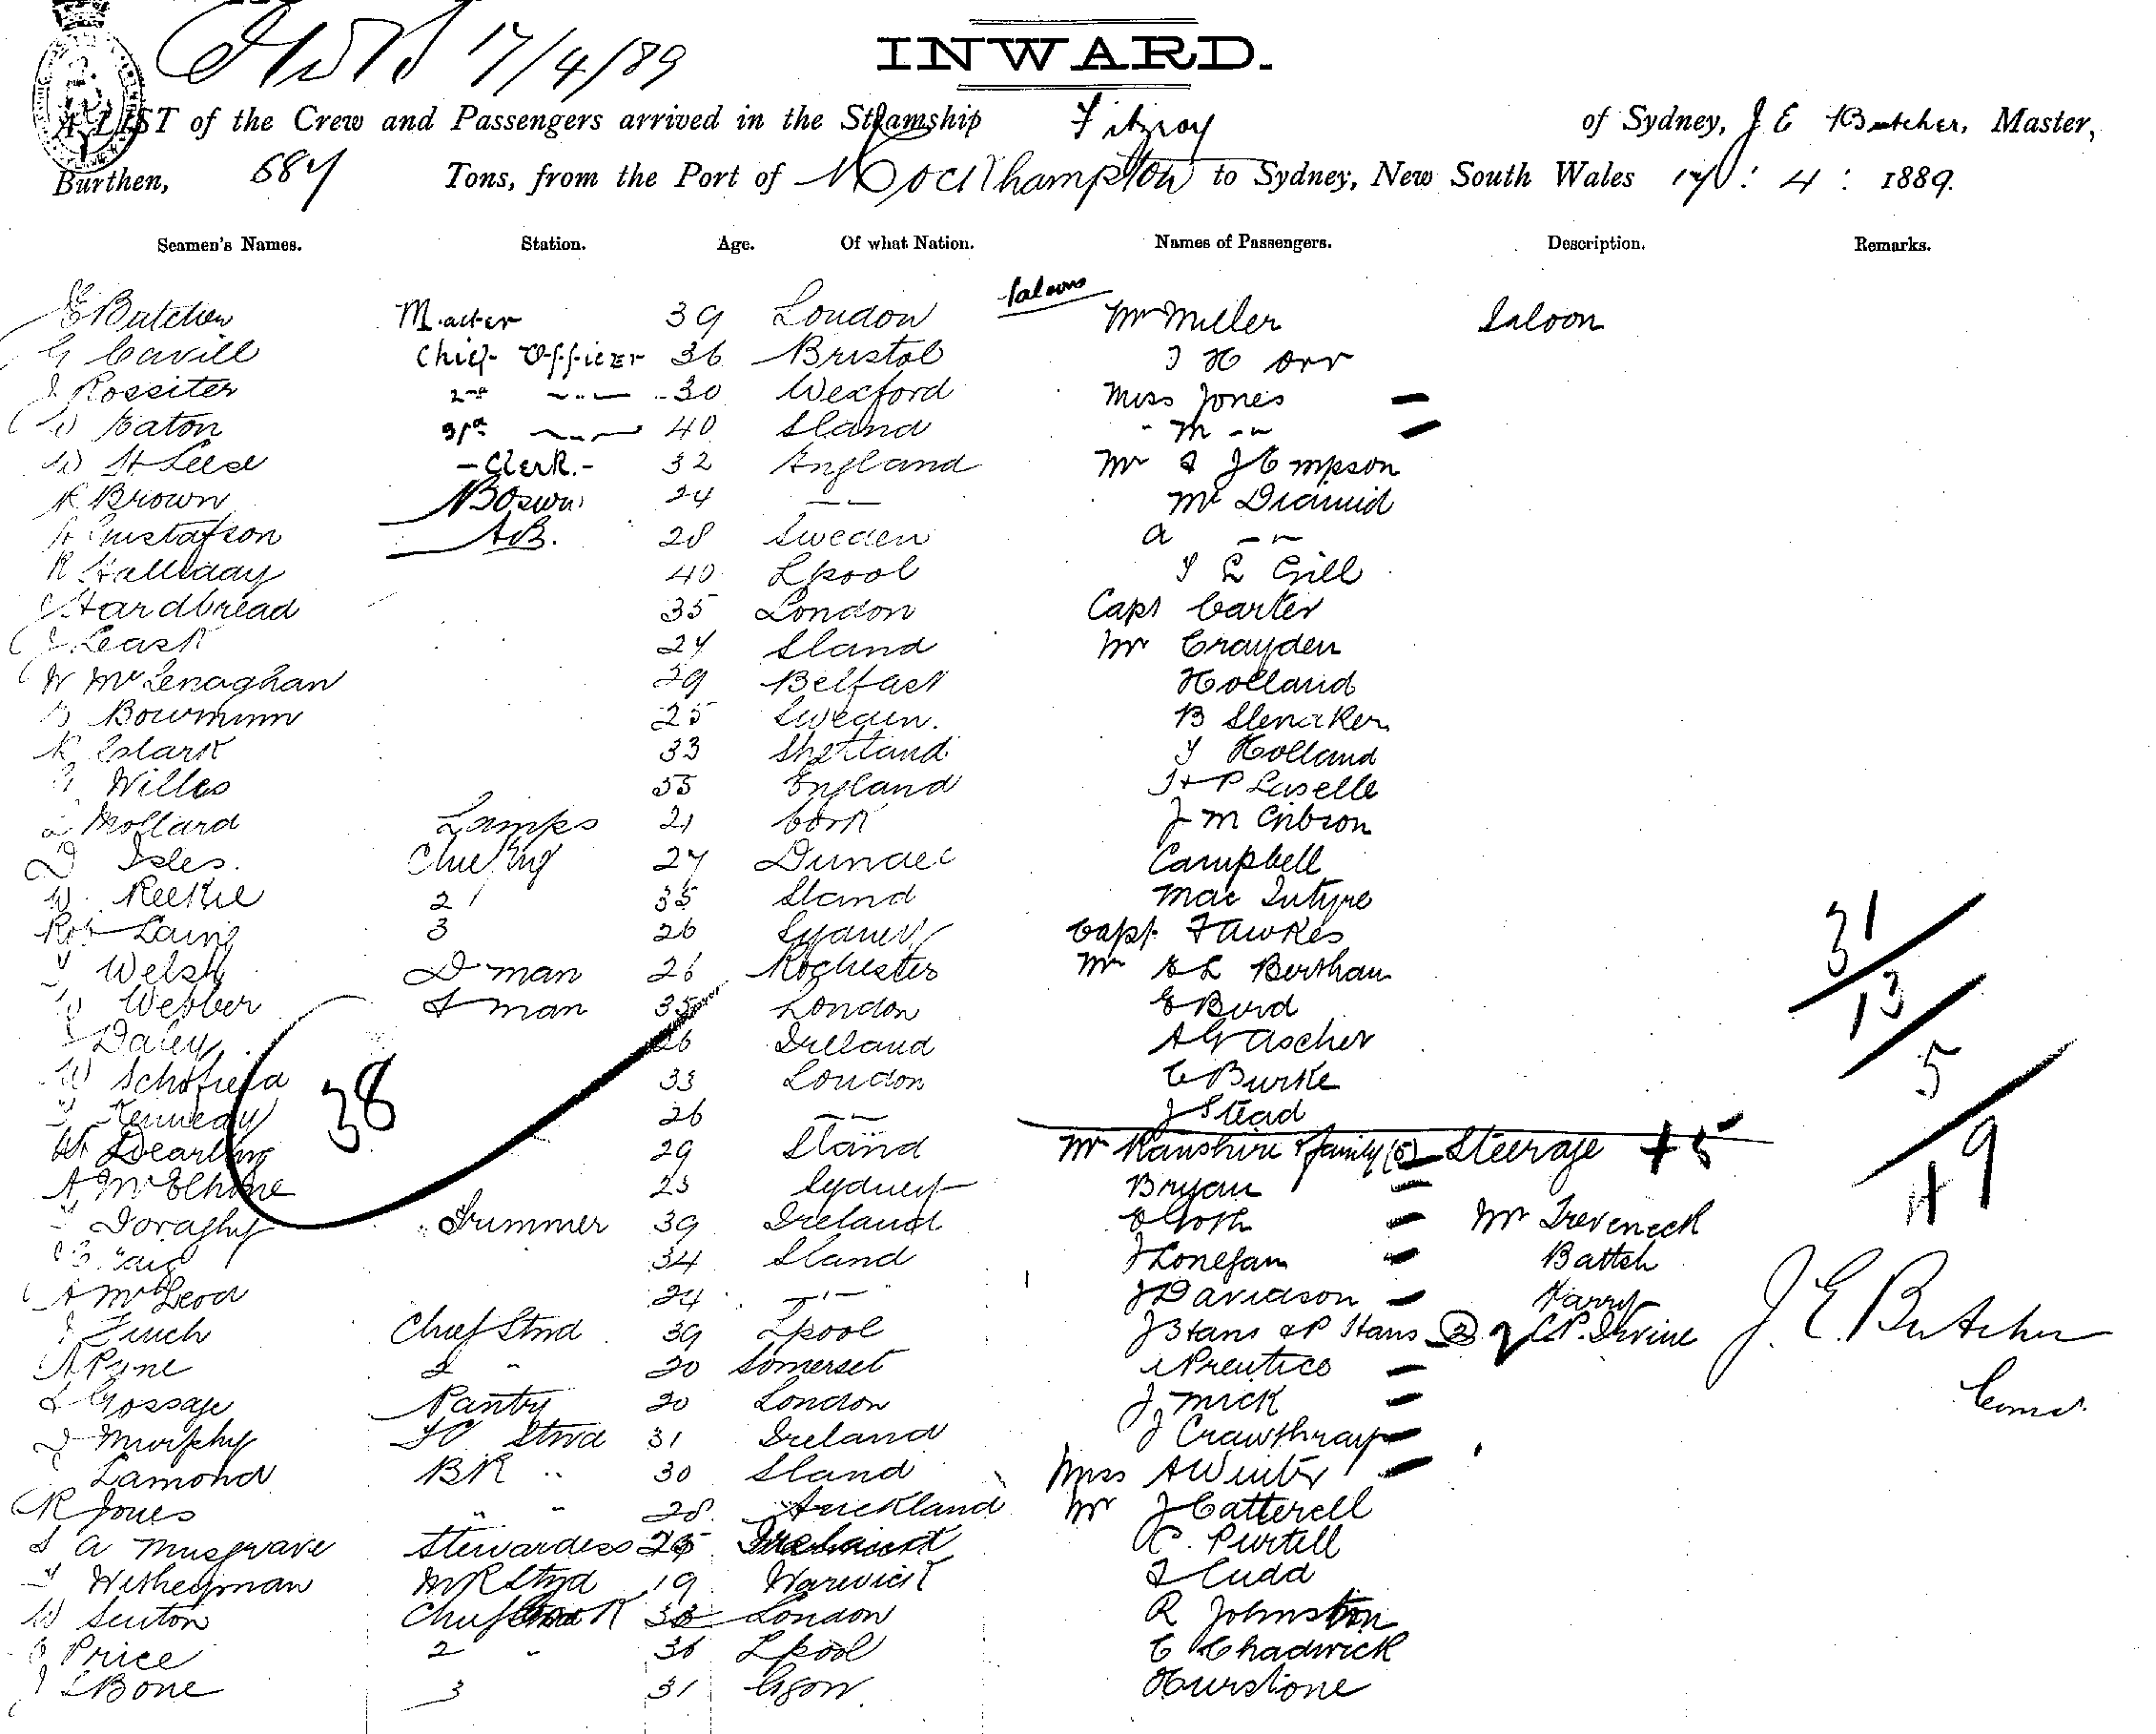 17/4/89
INWARD.
A LIST of the Crew and Passengers arrived in the Steamship Fitzroy of Sydney, J E Butcher, Master,
Burthen, 684 Tons, from the Port of Rockhampton to Sydney, New South Wales 17 : 4 : 1889.
Seamen's Names. Station. Age. Of what Nation. Names of Passengers. Description. Remarks.
Saloon
E Butcher Master 39 London Mr Miller Saloon
G Cavill Chief Officer 36 Bristol J H Orr
J Rossiter 2nd 30 Wexford Miss Jones
W Eaton 3rd 40 Sland " M
W St Leed Clerk 32 England Mr & J Empson
R Brown Boswn 24 Mc Diamid
Gustafson AB. 28 Sweden a
R Halliday 40 Lpool Gill
Hardbread 35 London Capt Carter
J Leask 24 Sland Mr Crayden
W McLenaghan 29 Belfast Holland
Bowminn 25 Sweden. B Slenaker
R 33 Shetland Holland
Willes 55 England Laselle
Mollard Lamps 21 Cork J M Gibson
D Isles. Chief Eng 27 Dundee Campbell
W. Reekie 2 35 Sland Mac Intyre
Robt Laing 3 26 Sydney Capt. Fawkes
Welsh D man 26 Rochester Mr Bertham
W Webber D man 35 London E Burd
Daley 26 Ireland A W Ascher
W Schofield 33 London C Burke
Kennedy 26 J Stead
Dearling 29 Sland Mr Ranshire & family (5) Steerage + 5
A McElhone 23 Sydney Bryan
Doraghy Trimmer 39 Ireland Mr Treveneck
34 Sland J Lonegan Battch
A McLeod 24 J Davidson Harry
J Finch Chief Stwd 39 Lpool J Hans & P Hans 2 C P. Irvine
A Pyne 2 " 20 Somerset Prentice
Gossage Pantry 20 London J Mick
Murphy Stwd 31 Ireland J Crawthray
Lamond BR " 30 Sland Miss A Winter
R Jones " " 28 Auckland Mr J Catterell
S A Musgrave Stewardess 25 Ireland C. Purtell
Witheyman M R Stwd 19 Warwick Cudd
W Senton Chief Cook 33 London R Johnston
Price 2 " 36 Lpool C Chadwick
Bone 3 31 Ggow Hurstone
38
31
13
5
49
J. E. Butcher
Comd.